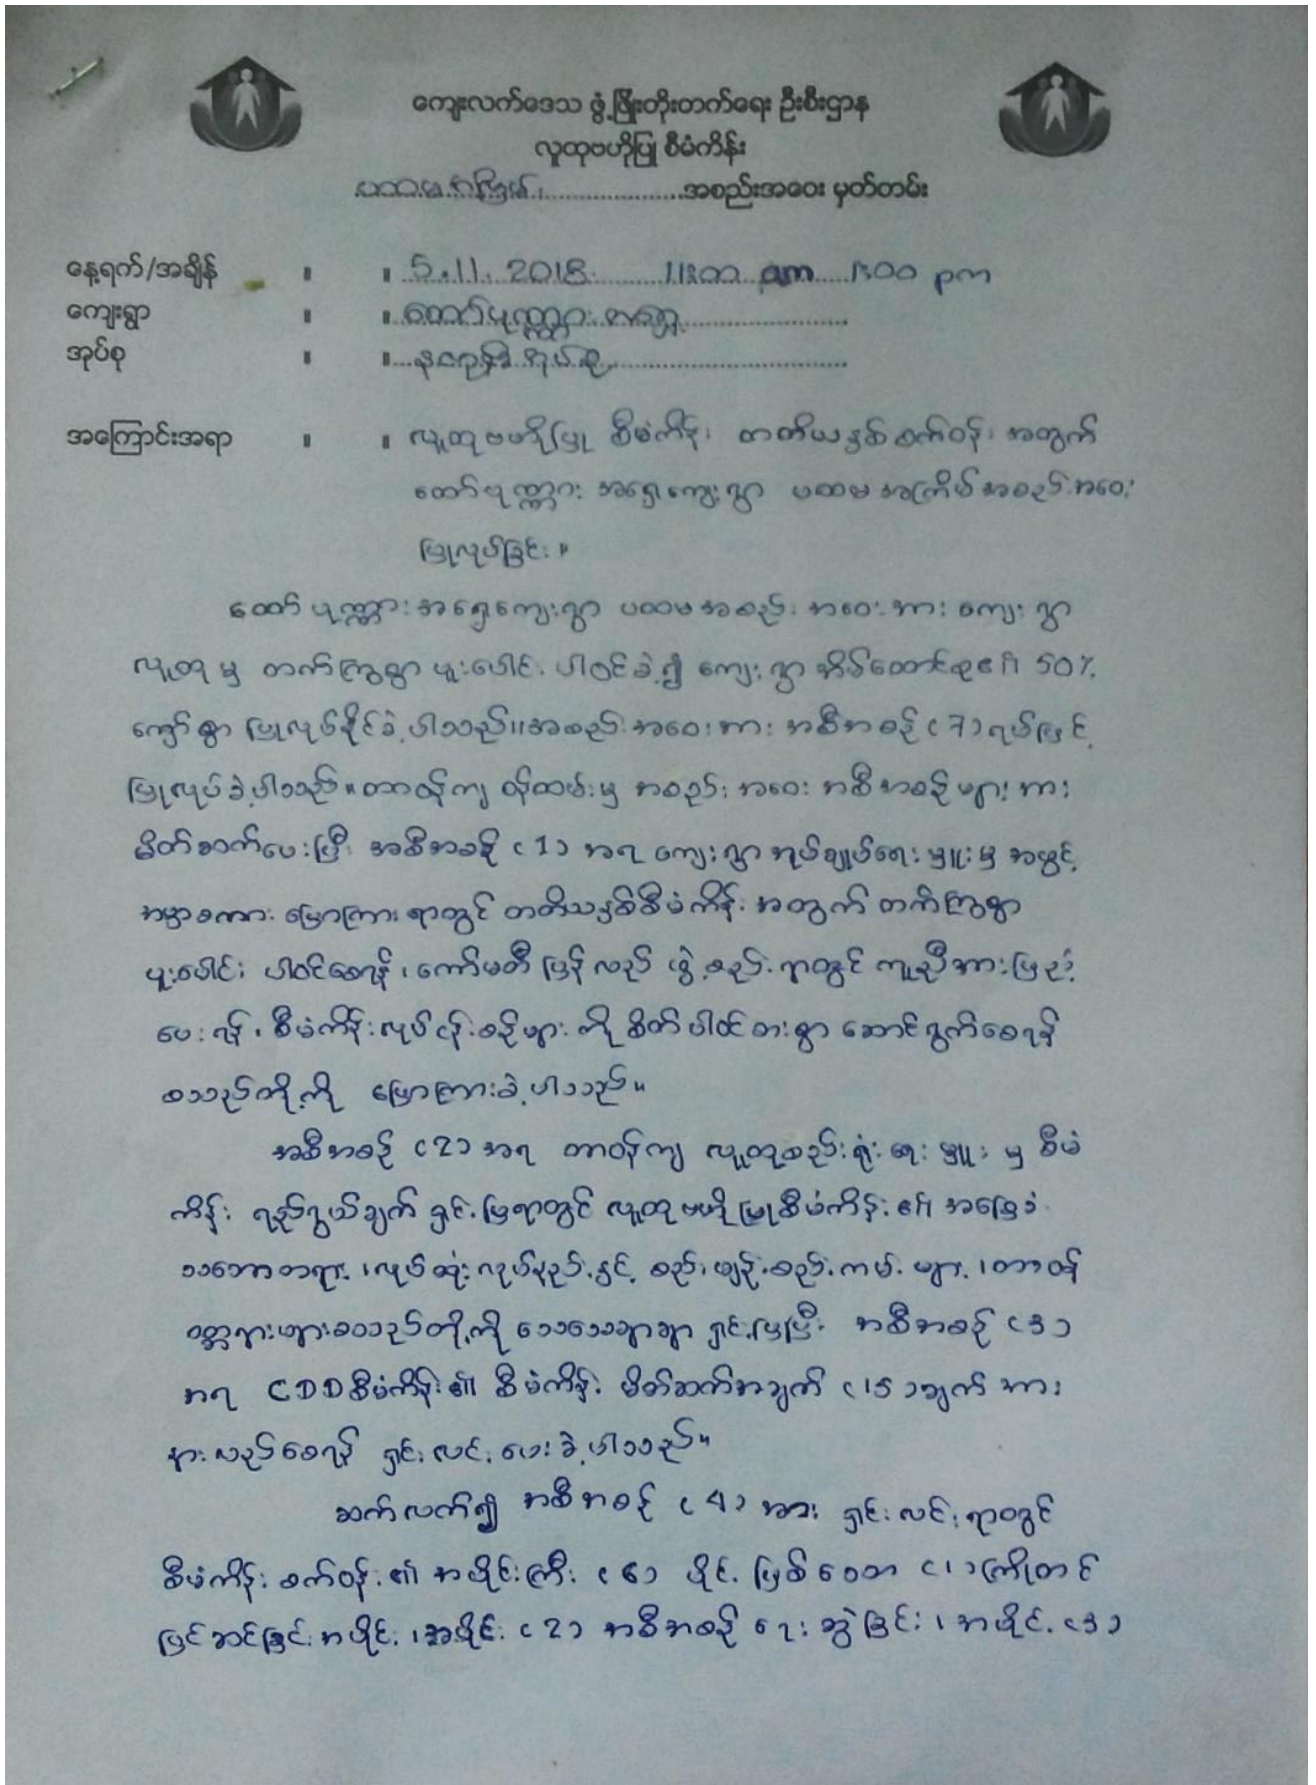 ကျေးလက်ဒေသ ဖွံ့ဖြိုးတိုးတက်ရေး ဦးစီးဌာန
လူထုဗဟိုပြု စီမံကိန်း
ပထမအကြိမ် အစည်းအဝေး မှတ်တမ်း
နေ့ရက်/အချိန် ။ ။ 5.11.2018 11:00 am 1:00 pm
ကျေးရွာ ။ ။ ထော်ပုဏ္ဏား အရှေ့
အုပ်စု ။ ။ အုပ်စု
အကြောင်းအရာ ။ ။ လူထုဗဟိုပြု စီမံကိန်း၊ တတိယနှစ်စက်ဝန်း အတွက်
ထော်ပုဏ္ဏား အရှေ့ကျေးရွာ ပထမအကြိမ်အစည်းအဝေး
ပြုလုပ်ခြင်း။
ထော်ပုဏ္ဏားအရှေ့ကျေးရွာ ပထမအစည်းအဝေးအား ကျေးရွာ
လူထုမှ တက်ကြွစွာ ပူးပေါင်းပါဝင်ခဲ့၍ ကျေးရွာအိမ်ထောင်စု၏ 50%
ကျော်စွာ ပြုလုပ်နိုင်ခဲ့ပါသည်။အစည်းအဝေးအား အစီအစဉ် (7) ရပ်ဖြင့်
ပြုလုပ်ခဲ့ပါသည်။ တာဝန်ကျ ဝန်ထမ်းမှ အစည်းအဝေး အစီအစဉ်များအား
မိတ်ဆက်ပေးပြီး အစီအစဉ် (1) အရ ကျေးရွာအုပ်ချုပ်ရေးမှူးမှ အဖွင့်
အမှာစကား ပြောကြားရာတွင် တတိယနှစ်စီမံကိန်းအတွက် တက်ကြွစွာ
ပူးပေါင်း ပါဝင်စေရန်၊ ကော်မတီ ပြန်လည် ဖွဲ့စည်းရာတွင် ကူညီအားဖြည့်
ပေးရန်၊ စီမံကိန်းလုပ်ငန်းစဉ်များ ကို စိတ်ပါဝင်စားစွာ ဆောင်ရွက်စေရန်
စသည်တို့ကို ပြောကြားခဲ့ပါသည်။
အစီအစဉ် (2) အရ တာဝန်ကျ လူထုစည်းရုံးရေးမှူးမှ စီမံ
ကိန်း ရည်ရွယ်ချက် ရှင်းပြရာတွင် လူထုဗဟိုပြုစီမံကိန်း၏ အခြေခံ
သဘောတရား၊ လုပ်ထုံးလုပ်နည်းနှင့် စည်းမျဉ်းစည်းကမ်းများ၊ တာဝန်
ဝတ္တရားများစသည်တို့ကို သေသေချာချာ ရှင်းပြပြီး အစီအစဉ် (3)
အရ CDD စီမံကိန်း၏ စီမံကိန်း မိတ်ဆက်အချက် (15) ချက် အား
နားလည်စေရန် ရှင်းလင်းပေးခဲ့ပါသည်။
ဆက်လက်၍ အစီအစဉ် (4) အား ရှင်းလင်းရာတွင်
စီမံကိန်း စက်ဝန်း၏ အပိုင်းကြီး (6) ပိုင်း ဖြစ်သော (1) ကြိုတင်
ပြင်ဆင်ခြင်းအပိုင်း၊ အပိုင်း (2) အစီအစဉ် ရေးဆွဲခြင်း၊ အပိုင်း (3)